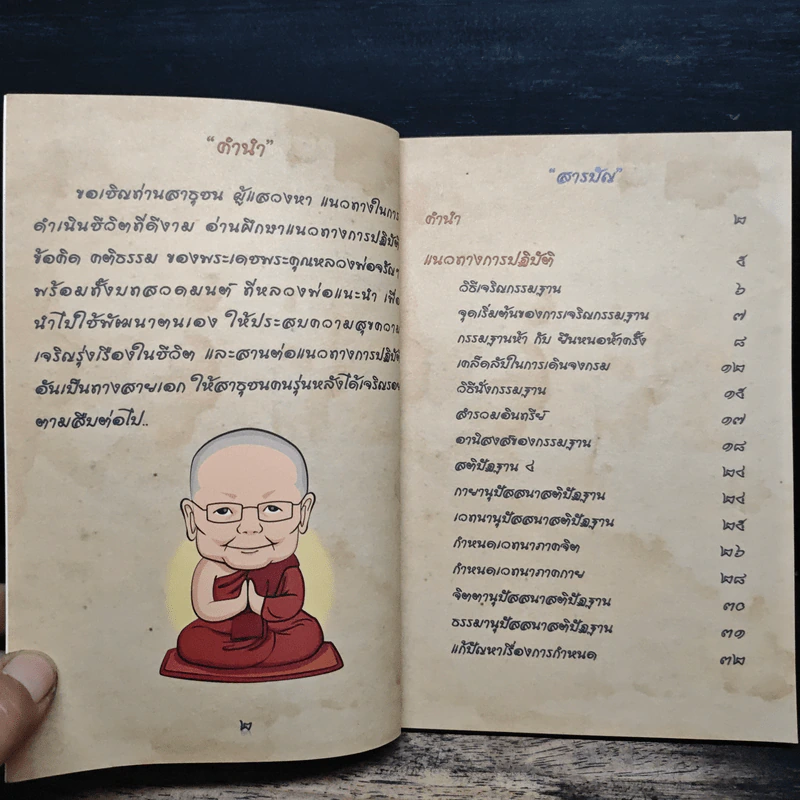 “คำนำ”
ขอเชิญท่านสาธุชน ผู้แสวงหา แนวทางในการ
ดำเนินชีวิตที่ดีงาม อ่านศึกษาแนวทางการปฏิบัติ
ข้อคิด คติธรรม ของพระเดชพระคุณหลวงพ่อจรัญฯ
พร้อมทั้งบทสวดมนต์ ที่หลวงพ่อแนะนำ เพื่อ
นำไปใช้พัฒนาตนเอง ให้ประสบความสุขความ
เจริญรุ่งเรืองในชีวิต และสานต่อแนวทางการปฏิบัติ
อันเป็นทางสายเอก ให้สาธุชนคนรุ่นหลังได้เจริญรอย
ตามสืบต่อไป..
๒
“สารบัญ”
คำนำ ๒
แนวทางการปฏิบัติ ๕
วิธีเจริญกรรมฐาน ๖
จุดเริ่มต้นของการเจริญกรรมฐาน ๗
กรรมฐานห้า กับ ยืนหนอห้าครั้ง ๘
เคล็ดลับในการเดินจงกรม ๑๒
วิธีนั่งกรรมฐาน ๑๕
สำรวมอินทรีย์ ๑๗
อานิสงส์ของกรรมฐาน ๑๘
สติปัฏฐาน ๔ ๒๔
กายานุปัสสนาสติปัฏฐาน ๒๔
เวทนานุปัสสนาสติปัฏฐาน ๒๕
กำหนดเวทนาภาคจิต ๒๖
กำหนดเวทนาภาคกาย ๒๘
จิตตานุปัสสนาสติปัฏฐาน ๓๐
ธรรมานุปัสสนาสติปัฏฐาน ๓๑
แก้ปัญหาเรื่องการกำหนด ๓๒